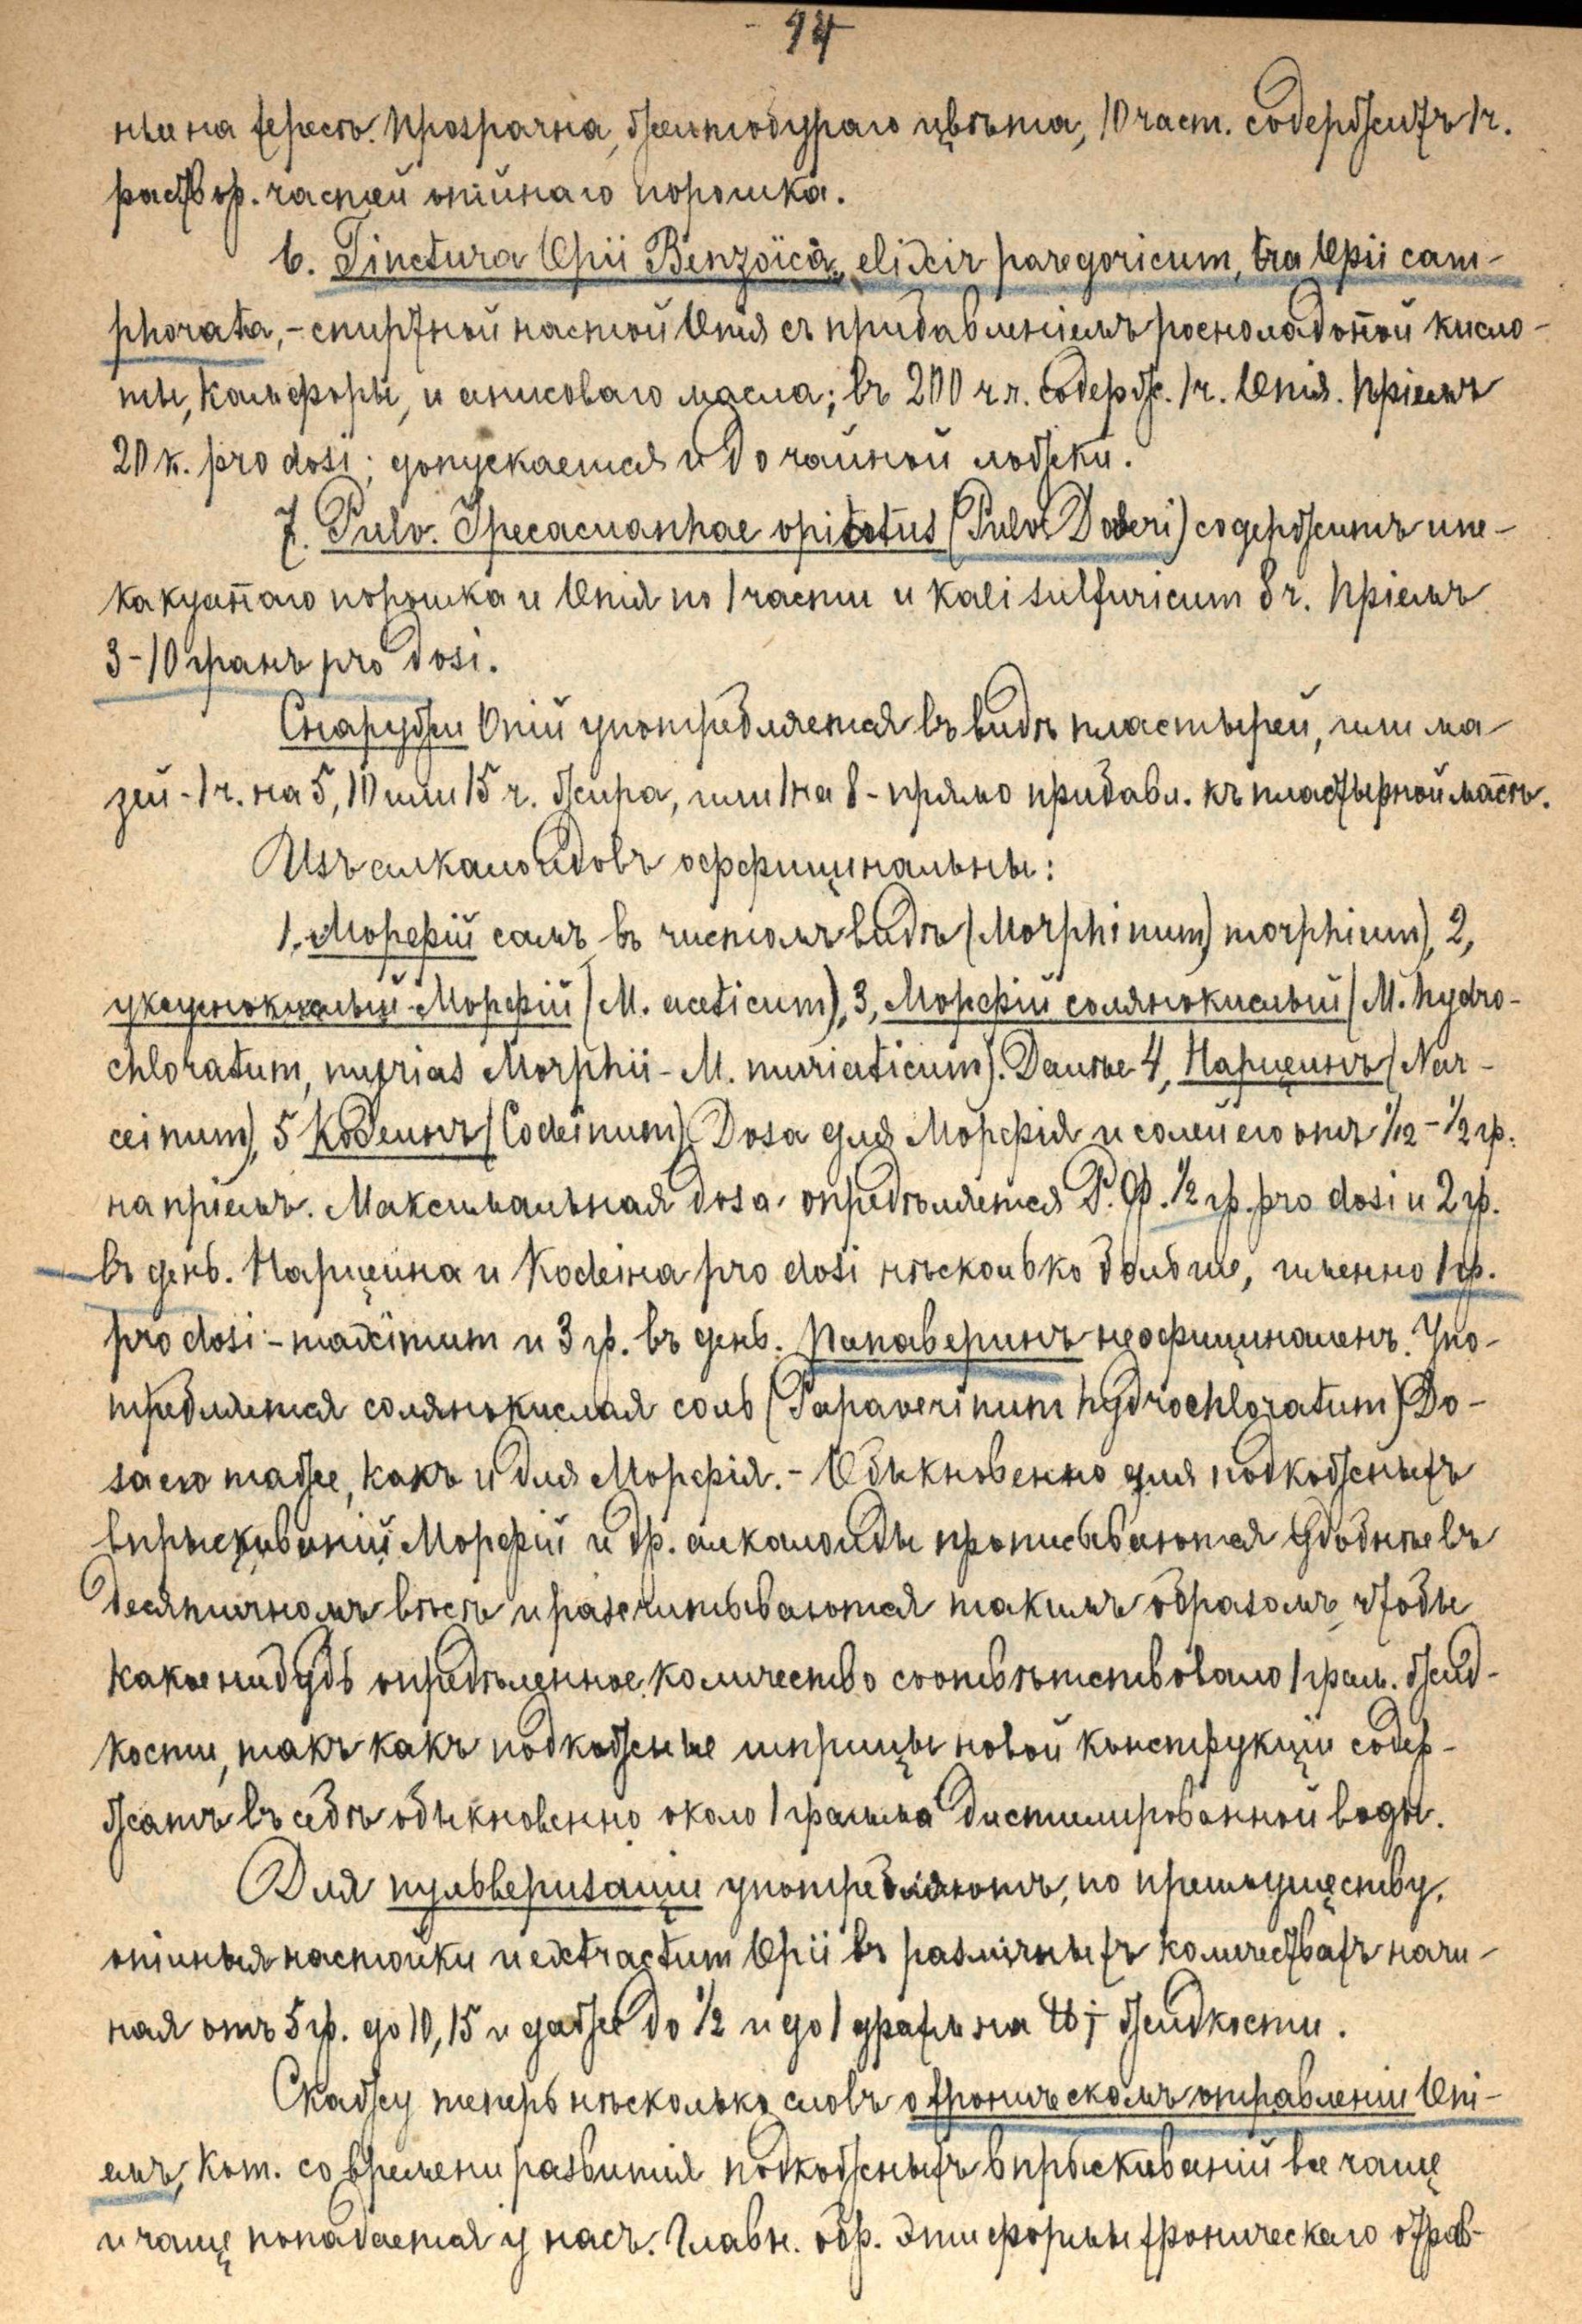 94
нье на хересѣ. Прозрачна, желтобураго цвѣта, 10 част. содержитъ 1 ч.
раствор. частей опійнаго порошка.
6. Tinctura Opii Benzoïca, elixir paregoricum, tra Opii cam-
phorata, - спиртной настой Опія съ придавленіемъ росноладонной кисло-
ты, камфоры, и анисоваго масла; въ 200 ч.ч. содерж. 1 ч. Опія. Пріемъ
20 к. pro dosi; допускается и до чайной ложки.
7. Pulv. Ipecacuanhae opiatus (Pulv. Doveri) содержитъ ипе-
какуаннаго порошка и Опія по 1 части и Kali sulfuricum 8 ч. Пріемъ
3-10 гранъ pro dosi.
Снаружи Опій употребляется въ видѣ пластырей, или ма-
зей - 1 ч. на 5, 10 или 15 ч. жира, или 1 на 8 - прямо придавл. къ пластырной массѣ.
Изъ алкалоидовъ оффицинальны:
1. Морфій самъ въ чистомъ видѣ (Morphinum, morphium), 2,
уксуснокислый Морфій (M. aceticum), 3, Морфій солянокислый (M. hydro-
chloratum, murias Morphii - M. muriaticum). Далѣе 4, Нарцеинъ (Nar-
ceinum), 5 Кодеинъ (Codeinum). Доза для Морфія и солей его отъ 1/12 - 1/2 гр.
на пріемъ. Максимальная доза опредѣляется Р. Ф. 1/2 гр. pro dosi и 2 гр.
въ день. Нарцеина и Кодеина pro dosi нѣсколько больше, именно 1 гр.
pro dosi - maximum и 3 гр. въ день. Папаверинъ неофициналенъ. Упо-
требляется солянокислая соль (Papaverinum hydrochloratum). До-
за его таже, какъ и для Морфія. - Обыкновенно для подкожныхъ
впрыскиваній Морфій и др. алкалоиды прописываются удобнѣе въ
десятичномъ вѣсѣ и разсчитываются такимъ образомъ, чтобы
какое нибудь опредѣленное количество соотвѣтствовало 1 грам. жид-
кости, такъ какъ подкожные шприцы новой конструкціи содер-
жатъ въ себѣ обыкновенно около 1 грамма дистилированной воды.
Для пульверизаціи употребляютъ, по преимуществу,
опійныя настойки и extractum Opii въ различныхъ количествахъ начи-
ная отъ 5 гр. до 10, 15 и даже до 1/2 и до 1 драхм. на ℔j жидкости.
Скажу теперь нѣсколько словъ о хроническомъ отравленіи Опі-
емъ, кот. со времени развитія подкожныхъ впрыскиваній все чаще
и чаще попадается у насъ. Главн. обр. эти формы хроническаго отрав-